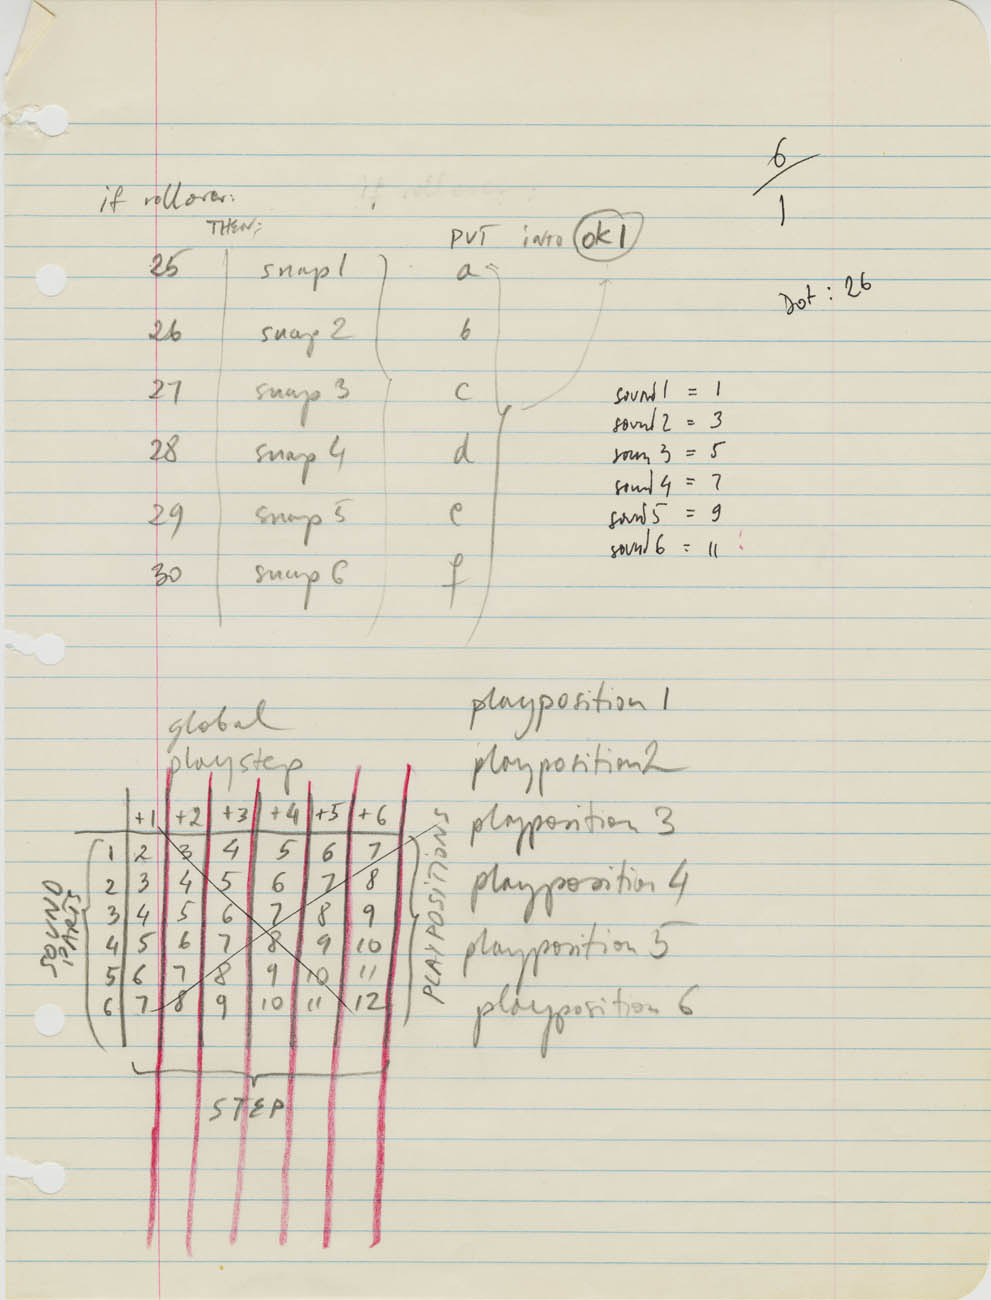 6
1
if rollover:
THEN:
PUT into ok1
25 snap1 a
26 snap 2 b
27 snap 3 c
28 snap 4 d
29 snap 5 e
30 snap 6 f
Dot: 26
sound1 = 1
sound2 = 3
soun 3 = 5
sound4 = 7
sound5 = 9
sound6 = 11
global
playstep
+1 +2 +3 +4 +5 +6
1 2 3 4 5 6 7
2 3 4 5 6 7 8
3 4 5 6 7 8 9
4 5 6 7 8 9 10
5 6 7 8 9 10 11
6 7 8 9 10 11 12
SOUND
STARTS
PLAYPOSITIONS
STEP
playposition 1
playposition2
playposition 3
playposition 4
playposition 5
playposition 6